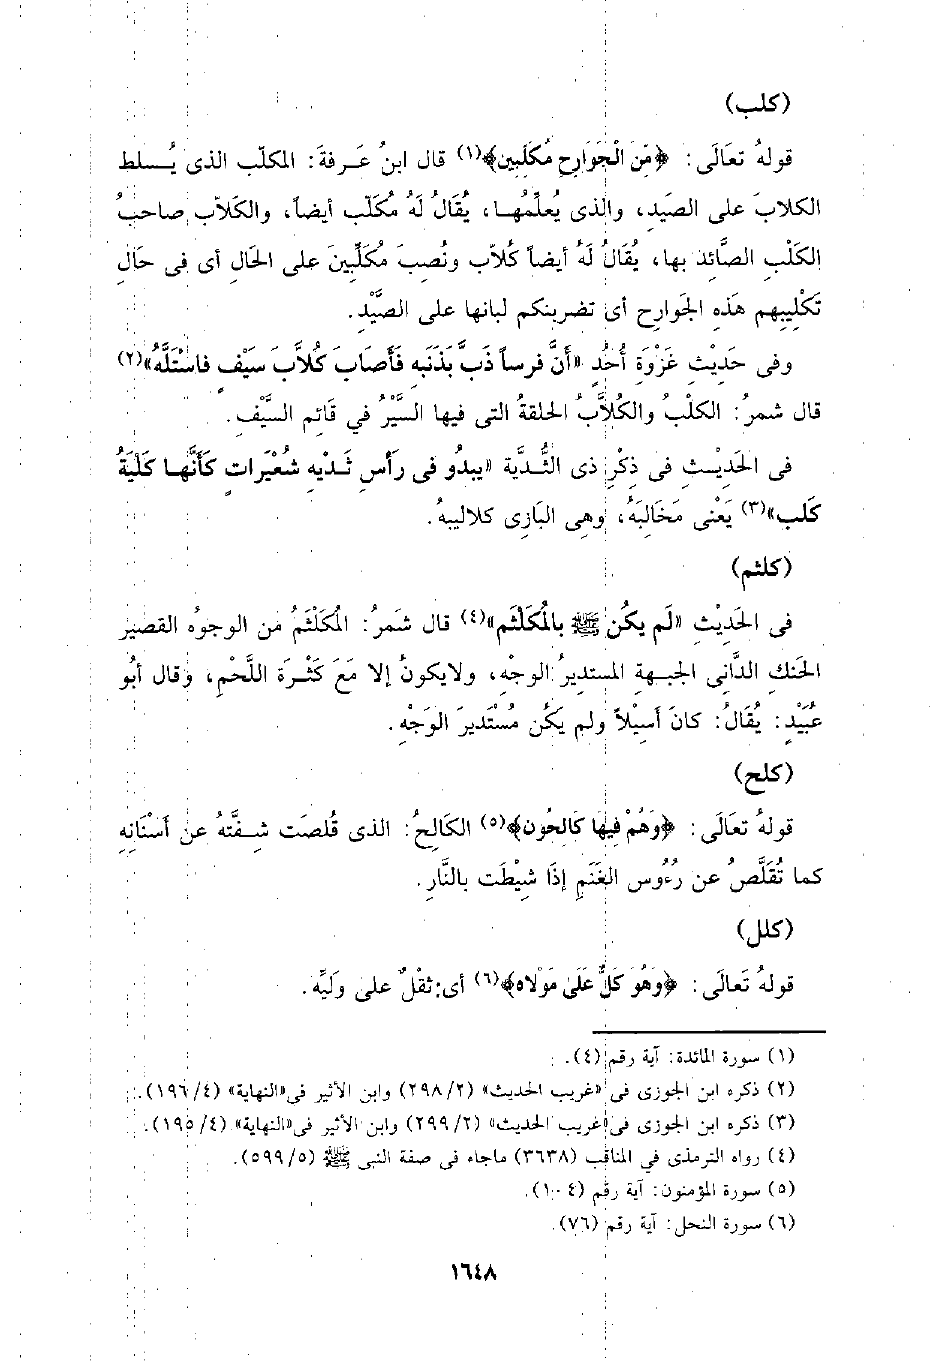 (كلب)
قولهُ تعَالَى: ﴿مِّنَ الْجَوَارِحِ مُكَلِّبِينَ﴾(١) قال ابنُ عَرفةَ: المكلّب الذى يُسلط
الكلابَ على الصيدِ، والذى يُعلّمُها، يُقَالُ لَهُ مُكَلّب أيضاً، والكَلاّب صاحبُ
الكَلْبِ الصَّائِد بها، يُقَالُ لَهُ أيضاً كُلاّب ونُصِبَ مكَلِّبينَ على الحَالِ أى فى حَالِ
تَكْلِيبِهم هَذِهِ الجَوارِحِ أى تضرينكم لبانها على الصَّيْدِ.
وفى حَدِيْثِ غَزْوَةِ أُحُدٍ «أنَّ فَرساً ذَبَّ بِذَنَبِهِ فَأَصَابَ كُلاَّبَ سَيْفٍ فاسْتَلَّهُ»(٢)
قال شمرُ: الكلْبُ والكُلاَّبُ الحلقةُ التى فيها السَّيْرُ في قَائِمِ السَّيْفِ.
فى الحَدِيْثِ فى ذِكْرِ ذى الثُّدَيَّة «يبدُو فى رَأسِ ثَدْيِهِ شُعْيَرات كَأنَّها كَلْبَةُ
كَلب»(٣) يَعْنى مَخَالِبَهُ، وهى البَازِى كلاليبهُ.
(كلثم)
فى الحَدِيْثِ «لَم يكُن ﷺ بالمُكَلْثَمِ»(٤) قال شمَرُ: المُكَلْثَمُ من الوجوهُ القصير
الحَنك الدَّانى الجبهةِ المستديرُ الوجْهِ، ولايكونُ إلا مَعَ كَثْرَة اللَّحْمِ، وقال أبُو
عُبَيْدٍ: يُقَالُ: كانَ أَسِيْلاً ولم يَكُن مُسْتَديرَ الوَجْهِ.
(كلح)
قولهُ تعَالَى: ﴿وَهُمْ فِيهَا كَالِحُونَ﴾(٥) الكَالِحُ: الذى قُلصَت شفَتهُ عن أسْنَانِهِ
كما تُقَلَّصُ عن رُءُوس الغَنَمِ إذَا شيْطَت بالنَّارِ.
(كلل)
قولهُ تَعَالَى: ﴿وَهُوَ كَلٌّ عَلَىٰ مَوْلاهُ﴾(٦) أى: ثقْلٌ على وَليِّه.
(١) سورة المائدة: آية رقم (٤).
(٢) ذكره ابن الجوزى فى «غريب الحديث» (٢٩٨/٢) وابن الأثير فى«النهاية» (١٩٦/٤).
(٣) ذكره ابن الجوزى فى«غريب الحديث» (٢٩٩/٢) وابن الأثير فى«النهاية» (١٩٥/٤).
(٤) رواه الترمذى في المناقب (٣٦٣٨) ماجاء فى صفة النبى ﷺ (٥٩٩/٥).
(٥) سورة المؤمنون: آية رقم (١٠٤).
(٦) سورة النحل: آية رقم (٧٦).
١٦٤٨